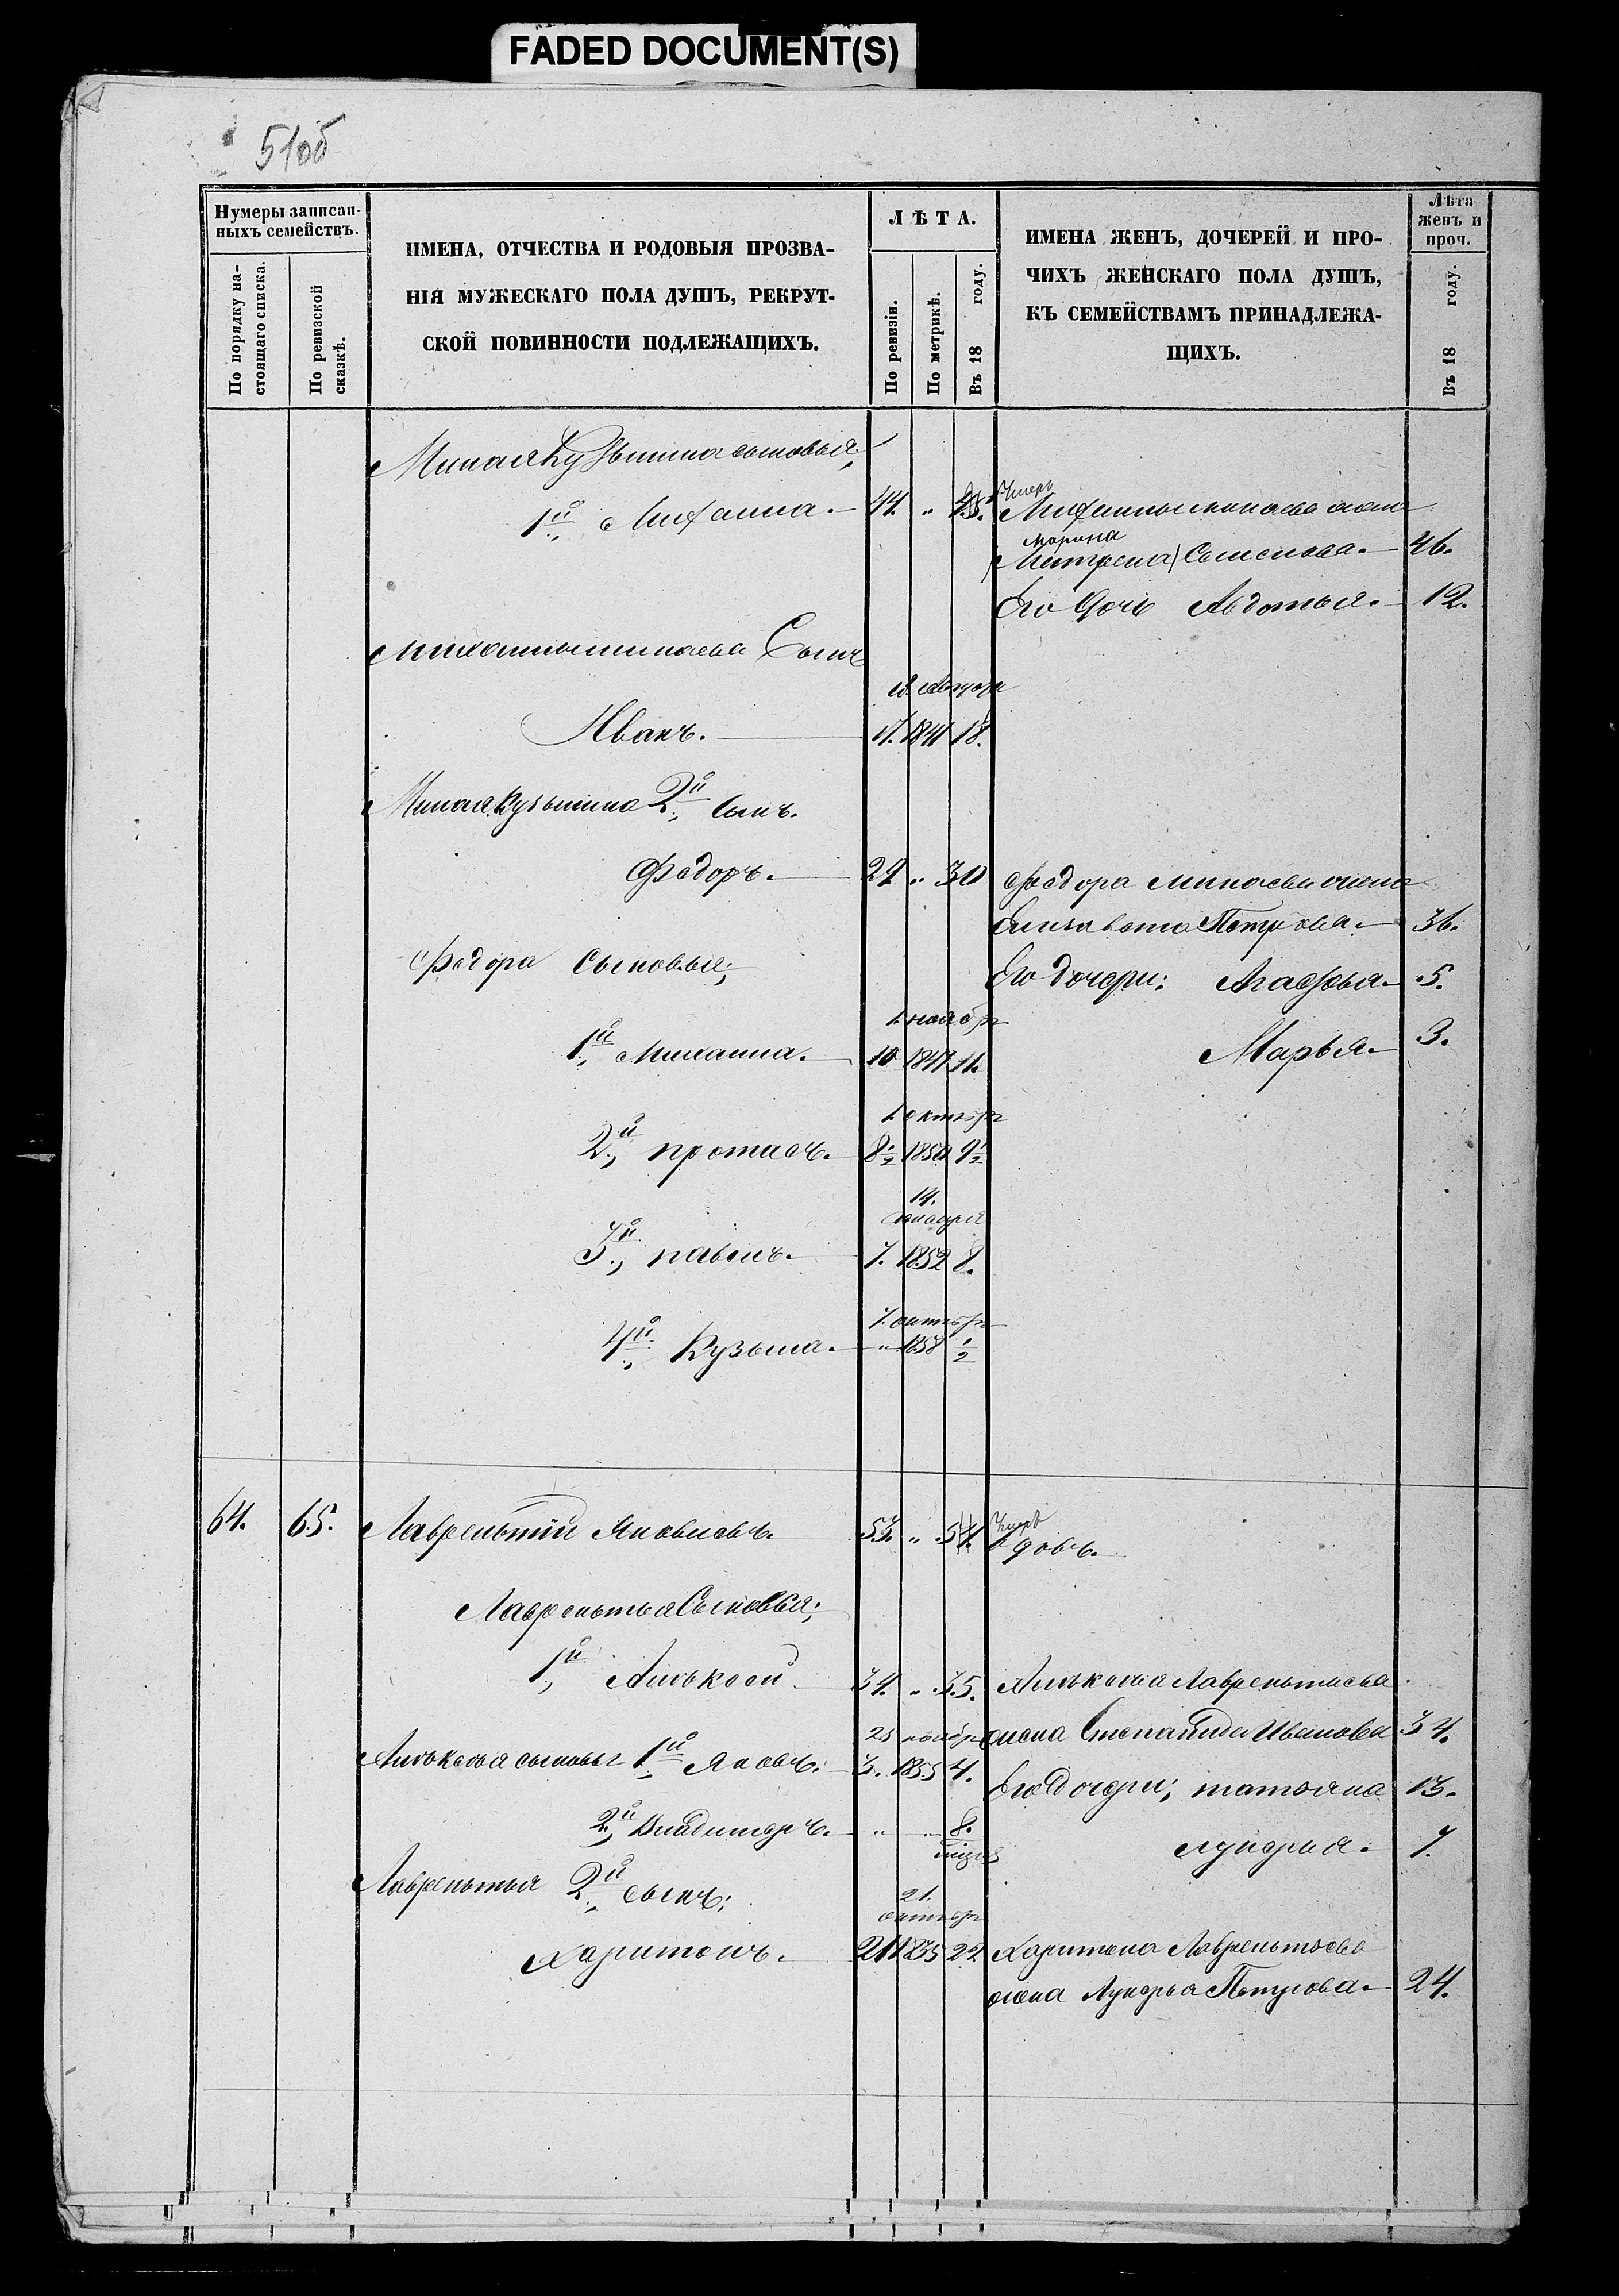 FADED DOCUMENT(S)
51об
Нумеры записан-
ныхъ семействъ.
По порядку на-
стоящаго списка.
По ревизской
сказкѣ.
ИМЕНА, ОТЧЕСТВА И РОДОВЫЯ ПРОЗВА-
НІЯ МУЖЕСКАГО ПОЛА ДУШЪ, РЕКРУТ-
СКОЙ ПОВИННОСТИ ПОДЛЕЖАЩИХЪ.
ЛѢТА.
По ревизіи.
По метрикѣ.
Въ 18 году.
ИМЕНА ЖЕНЪ, ДОЧЕРЕЙ И ПРО-
ЧИХЪ ЖЕНСКАГО ПОЛА ДУШЪ,
КЪ СЕМЕЙСТВАМЪ ПРИНАДЛЕЖА-
ЩИХЪ.
Лѣта
женъ и
проч.
Въ 18 году.
Миная Кузьмина сыновья;
1й Михаила. 44. „ 45. Умеръ Михаилы Минаева жена
Марина
Матрена Семенова. 46.
Его дочь Авдотья. 12.
Михаилы Минаева Сынъ
Августа
Иванъ. 17. 1841 18.
Миная Кузьмина 2й Сынъ.
Федоръ. 29. „ 30 Федора Минаева жена
Елизавета Петрова. 36.
Федора Сыновья; Его дочери: Агафья 5.
1. ноября
1й Михаила. 10 1847 11. Марья 3.
1. октября
2й протасъ. 8½ 1850 9½
14.
января
3й павелъ. 7. 1852 8.
1. октября
4й Кузьма. „ 1858 ½
64. 65. Лаврентий Яковлевъ. 53. „ 54. Умеръ
вдовъ.
Лаврентья Сыновья;
1й Алексей 34. „ 35. Алексея Лаврентьева
25 ноября жена Степанида Иванова 34.
Алексея сыновья 1й Яковъ. 3. 1855 4.
Его дочери; татьяна 13.
2й Владимеръ. „ 8.
лукерья. 7.
Лаврентья 2й сынъ;
21.
октября
Харитонъ. 21 1835 22 Харитона Лаврентьева
жена Лукерья Петрова. 24.